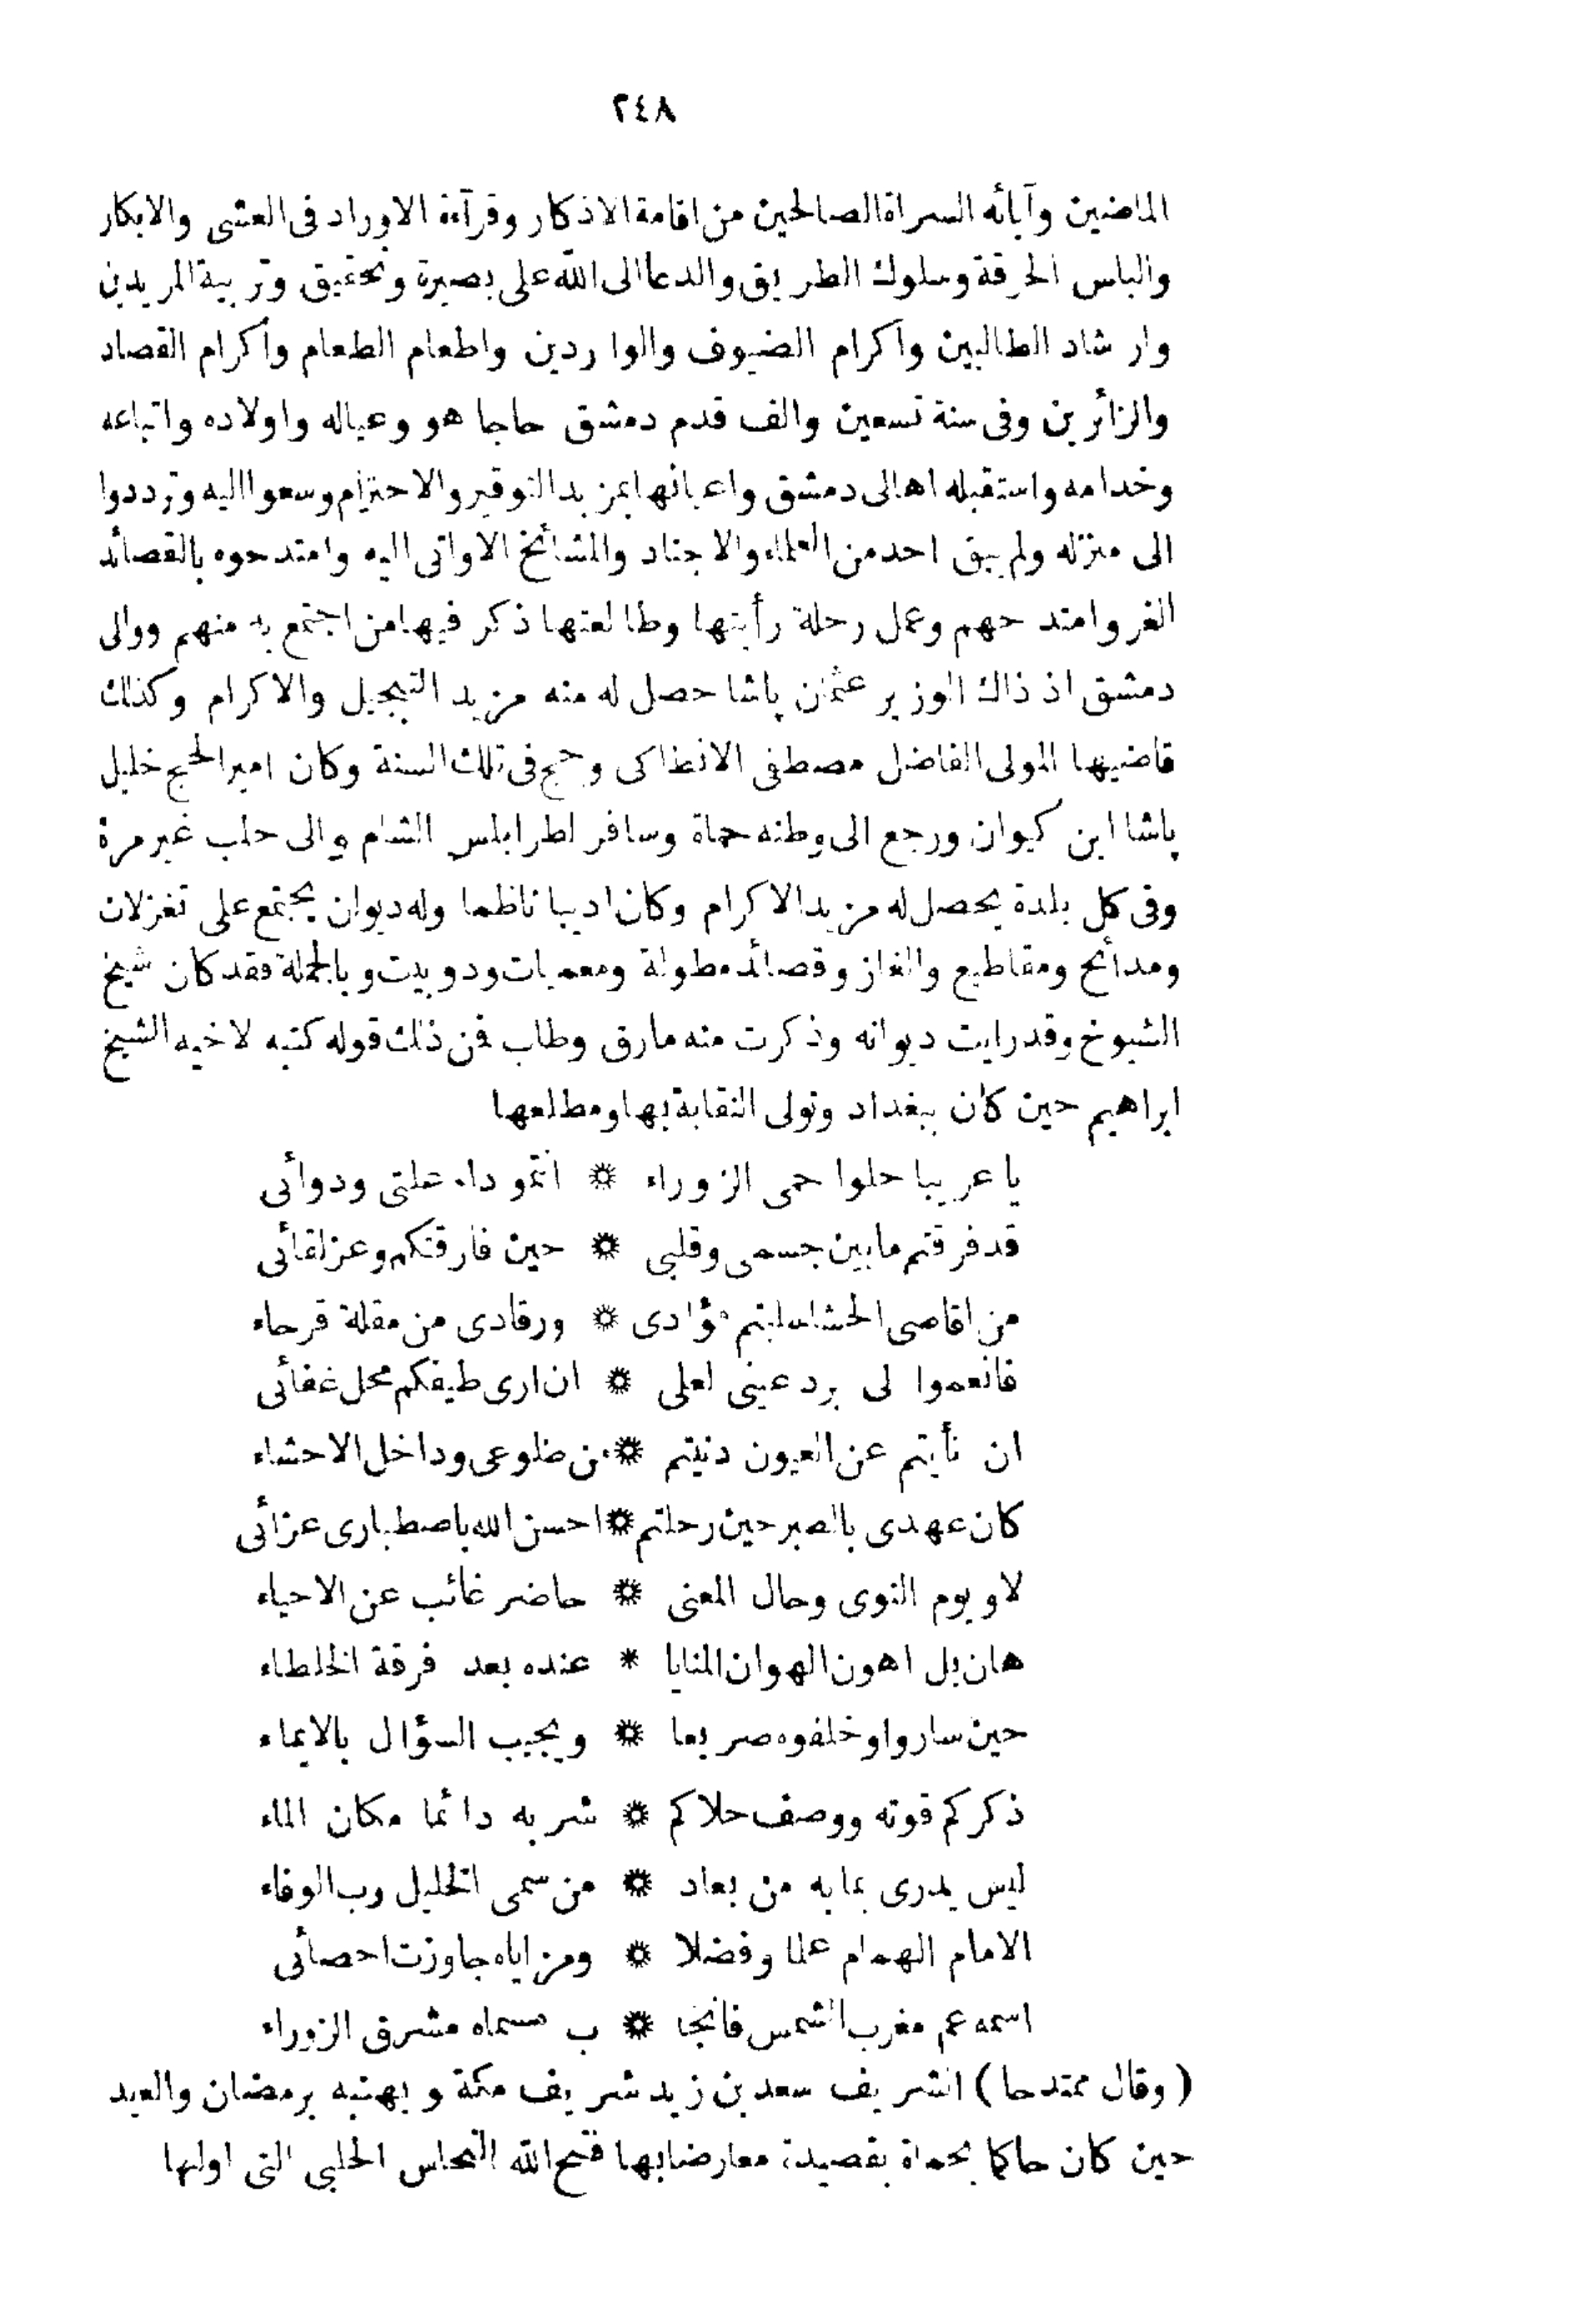 ٢٤٨
الماضين وآبائه السراة الصالحين من اقامة الاذكار وقرآءة الاوراد فى العشى والابكار
والباس الخرقة وسلوك الطريق والدعا الى الله على بصيرة وتحقيق وتربية المريدين
وارشاد الطالبين واكرام الضيوف والواردين واطعام الطعام وأكرام القصاد
والزائرين وفى سنة تسعين والف قدم دمشق حاجا هو وعياله واولاده واتباعه
وخدامه واستقبله اهالى دمشق واعيانها بمزيد التوقير والاحترام وسعوا اليه وترددوا
الى منزله ولم يبق احد من العلماء والاجناد والمشائخ الا واتى اليه وامتدحوه بالقصائد
الغر وامتدحهم وعمل رحلة رأيتها وطالعتها ذكر فيها من اجتمع به منهم ووالى
دمشق اذ ذاك الوزير عثمان پاشا حصل له منه مزيد التبجيل والاكرام وكذلك
قاضيها المولى الفاضل مصطفى الانطاكى وحج فى تلك السنة وكان امير الحج خليل
پاشا ابن كيوان ورجع الى وطنه حماة وسافر لطرابلس الشام والى حلب غير مرة
وفى كل بلدة يحصل له مزيد الاكرام وكان اديبا ناظما وله ديوان يجتمع على تغزلات
ومدائح ومقاطيع والغاز وقصائد مطولة ومعميات ودوبيت وبالجملة فقد كان شيخ
الشيوخ وقد رايت ديوانه وذكرت منه مارق وطاب فمن ذلك قوله كتبه لاخيه الشيخ
ابراهيم حين كان ببغداد وتولى النقابة بها ومطلعها
يا عريبا حلوا حمى الزوراء * انتمو داء علتى ودوائى
قد فرقتم مابين جسمى وقلبى * حين فارقتكم وعز لقائى
من اقاصى الحشا سلبتم فؤادى * ورقادى من مقلة قرحاء
فانعموا لى برد عينى لعلى * ان ارى طيفكم محل غفائى
ان نأيتم عن العيون دنيتم * من ضلوعى وداخل الاحشاء
كان عهدى بالصبر حين رحلتم * احسن الله باصطبارى عزائى
لا ويوم النوى وحال المعنى * حاضر غائب عن الاحياء
هان بل اهون الهوان المنايا * عنده بعد فرقة الخلطاء
حين ساروا وخلفوه صريعا * ويجيب السؤال بالايماء
ذكركم قوته ووصف حلاكم * شربه دائما مكان الماء
ليس يدرى بمابه من بعاد * من سمى الخليل رب الوفاء
الامام الهمام علما وفضلا * ومزاياه جاوزت احصائى
اسمه عم مغرب الشمس فانجا * ب مسماه مشرق الزوراء
(وقال ممتدحا) الشريف سعد بن زيد شريف مكة ويهنيه برمضان والعيد
حين كان حاكما بحماة بقصيدة معارضا بها فتح الله النحاس الحلبى التى اولها